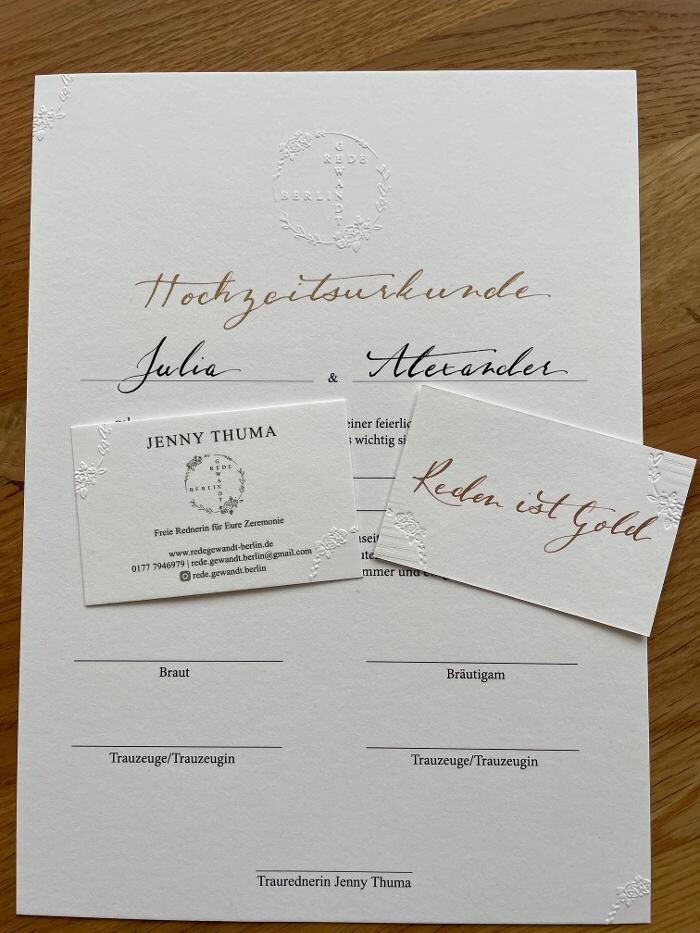 G
REDE
W
A
BERLIN
D
T
Hochzeitsurkunde
Julia & Alexander
einer feierlic
s wichtig si
JENNY THUMA
G
REDE
W
A
BERLIN
D
T
Freie Rednerin für Eure Zeremonie
www.redegewandt-berlin.de
0177 7946979 | rede.gewandt.berlin@gmail.com
rede.gewandt.berlin
Reden ist Gold
nseit
mmer und
Braut Bräutigam
Trauzeuge/Trauzeugin Trauzeuge/Trauzeugin
Traurednerin Jenny Thuma